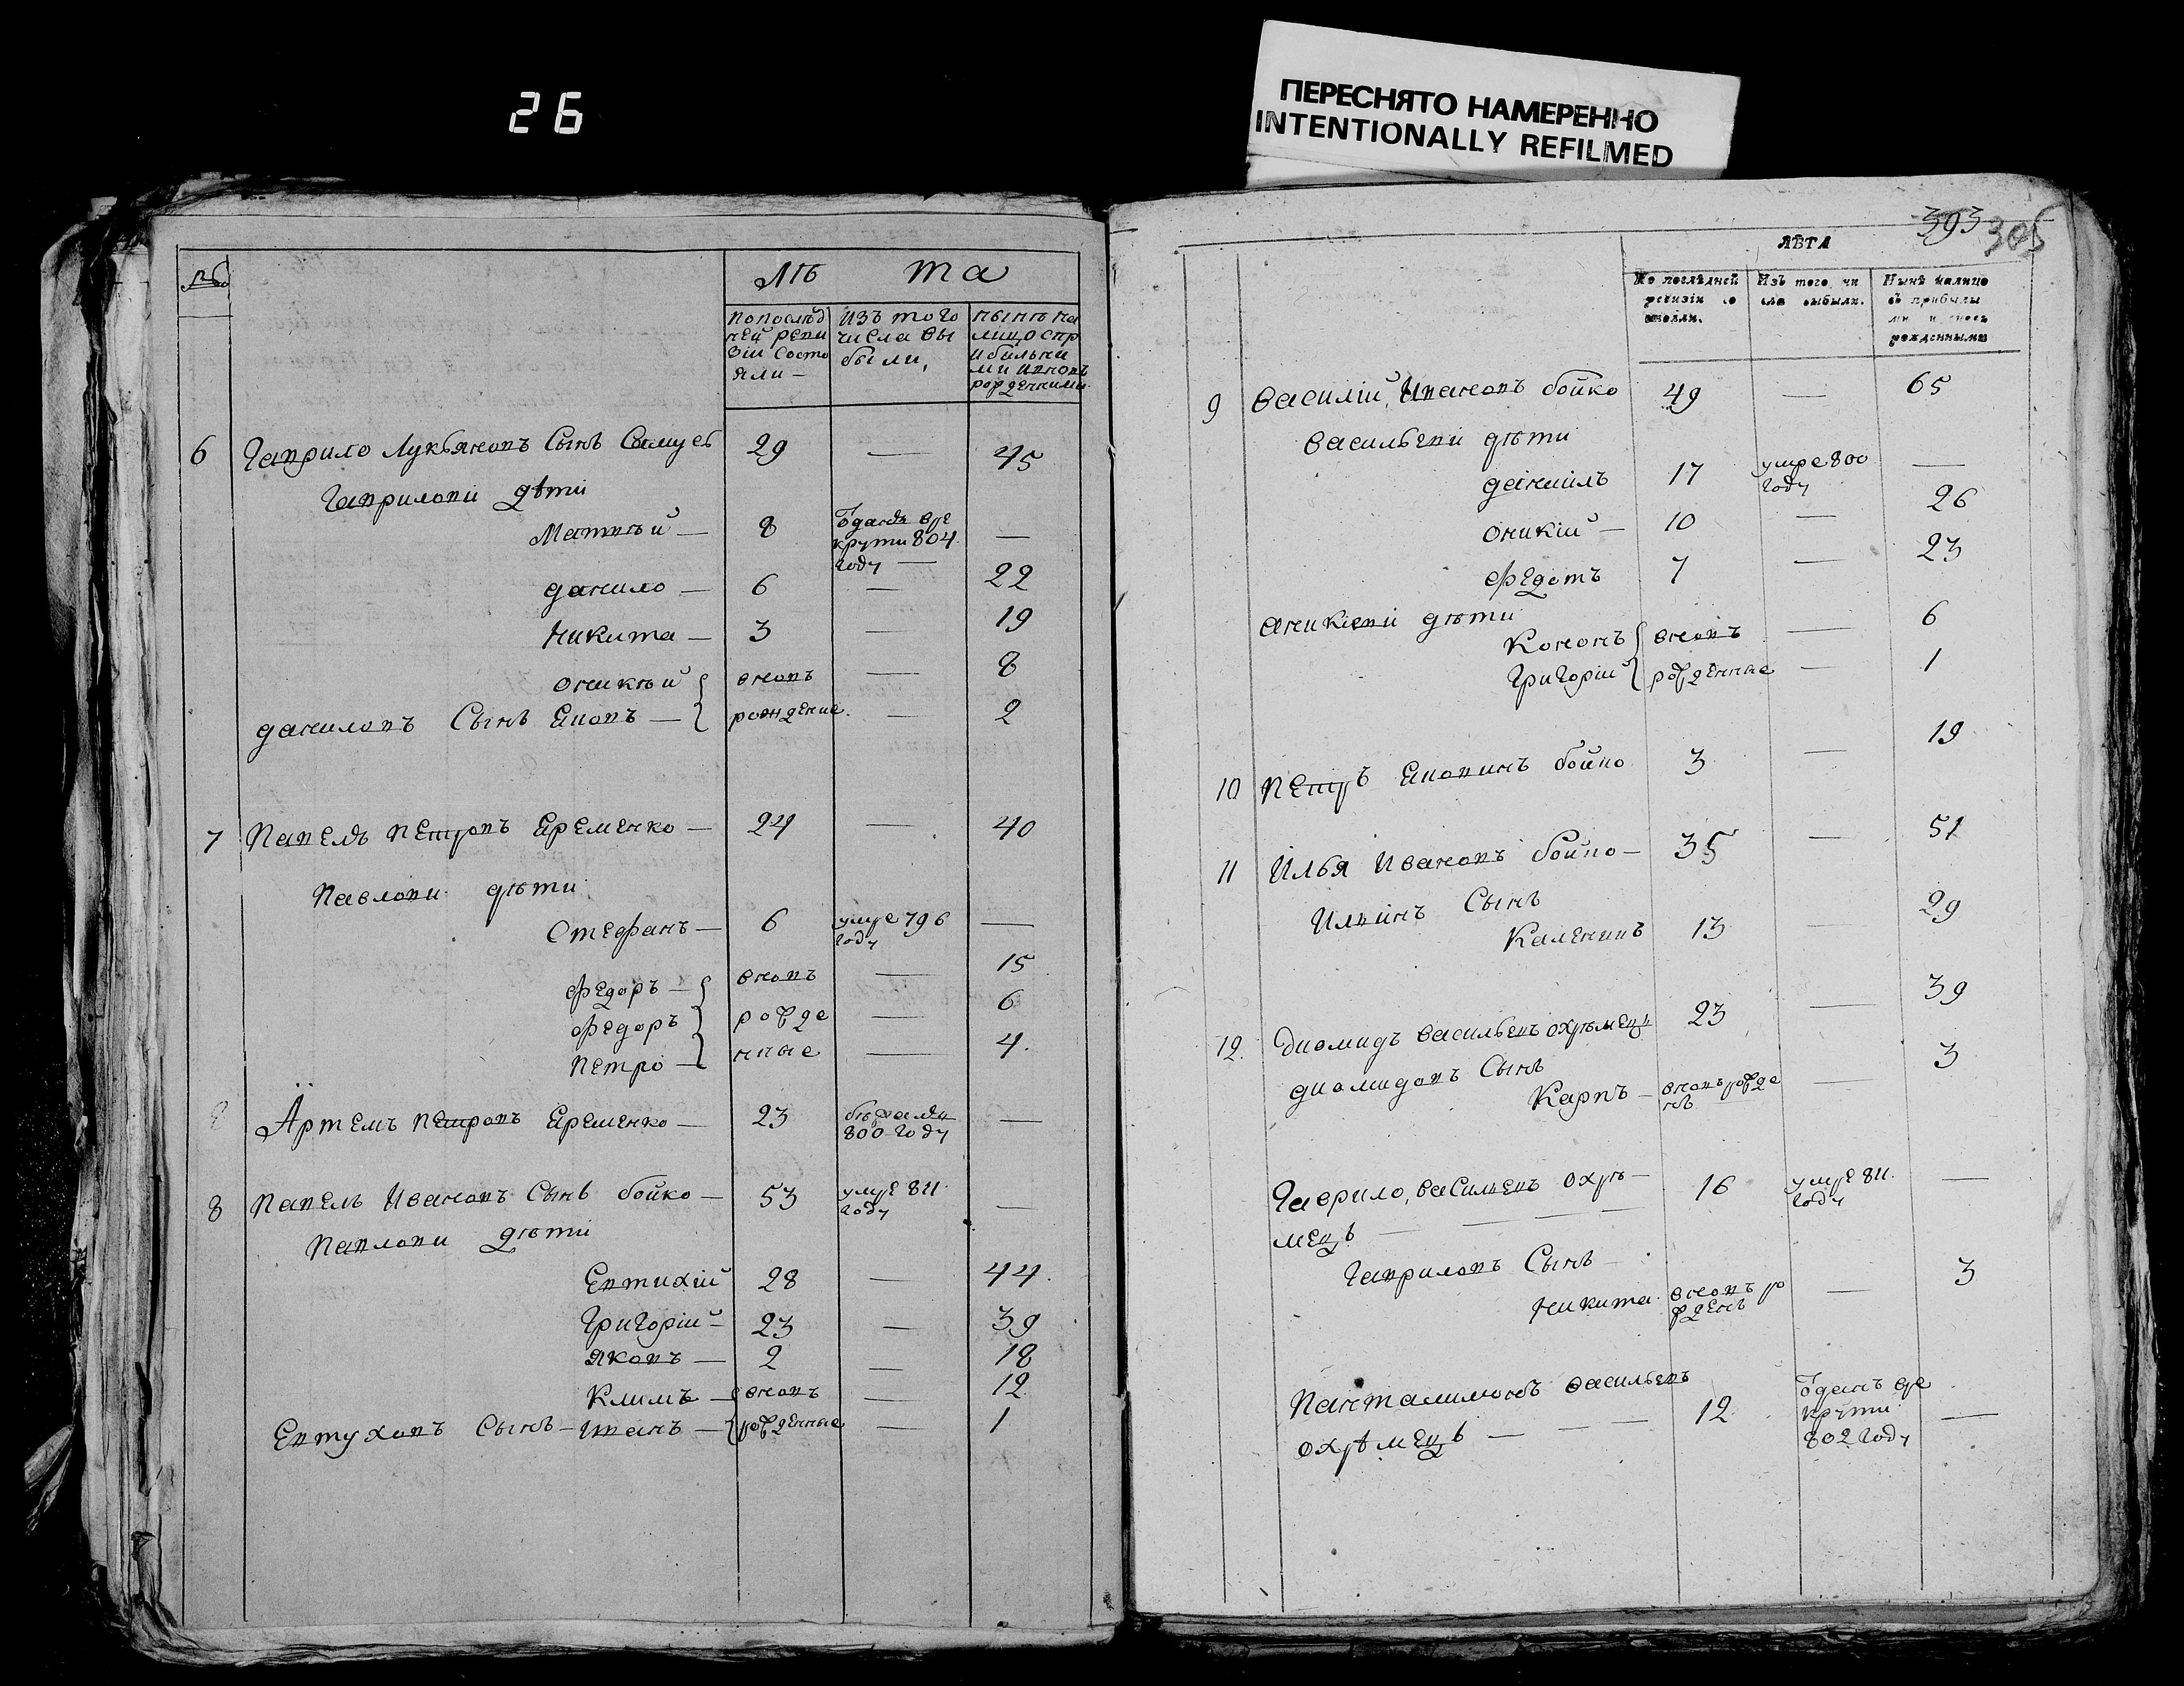 26
ПЕРЕСНЯТО НАМЕРЕННО
INTENTIONALLY REFILMED
№
Лѣ та
попослѣд
ней реви
зіи состо
яли —
изъ того
числа вы
были,
нынѣ на
лицо спр
ибылы
ми ивновь
рожденными
6 Гаврило Лукьяновъ Сынъ 29 — 45
Гавриловы дѣти
Матвѣй — 8 одан вре
крути 804 —
году —
данило — 6 — 22
Никита — 3 — 19
оникѣй вновь — 8
даниловъ Сынъ — рожденые — 2
7 Павелъ Петровъ Еременко — 24 — 40
Павлови дѣти
Стефанъ — 6 умре 796 —
году
Федоръ — вновь — 15
Федоръ рожде — 6
Петро — нные — 4.
Артемъ Петровъ Еременко — 23 бѣжали —
800 году
8 Павелъ Ивановъ Сынъ бойко — 53 умре 811. —
году
Павлови дѣти
Евтихій 28 — 44.
Григорій — 23 — 39
Яковъ — 2 — 18
Климъ — вновь — 12
Евтуховъ Сынъ — Иванъ — рожденные — 1
393 305
ЛѢТА
По послѣдней
ревизіи со
стояли.
Изъ того чи
сла выбыли.
Нынѣ налицо
съ прибылы
ми и вновь
рожденными
9 Василій Ивановъ бойко 49 — 65
Васильеви дѣти
даніилъ 17 умре 800 —
году
оникій — 10 — 26
Федотъ 7 — 23
дѣти
Кононъ вновь — 6
Григорій рожденные — 1
10 Петръ бойко 3 — 19
11 Илья Ивановъ бойко — 35 — 51
Илвинъ Сынъ
Каленикъ 13 — 29
12. Диомидъ Васильевъ охрѣмец 23 — 39
диомидовъ Сынъ
Карпъ — вновь рожде — 3
нъ
Гаврило, Васильевъ охрѣ — 16 умре 811. —
мецъ — — — году
Гавриловъ Сынъ —
Никита вновь ро — 3
жденъ
Панталимонъ Васильевъ
охрѣмецъ — — — 12 оданъ вре
крути —
802 году